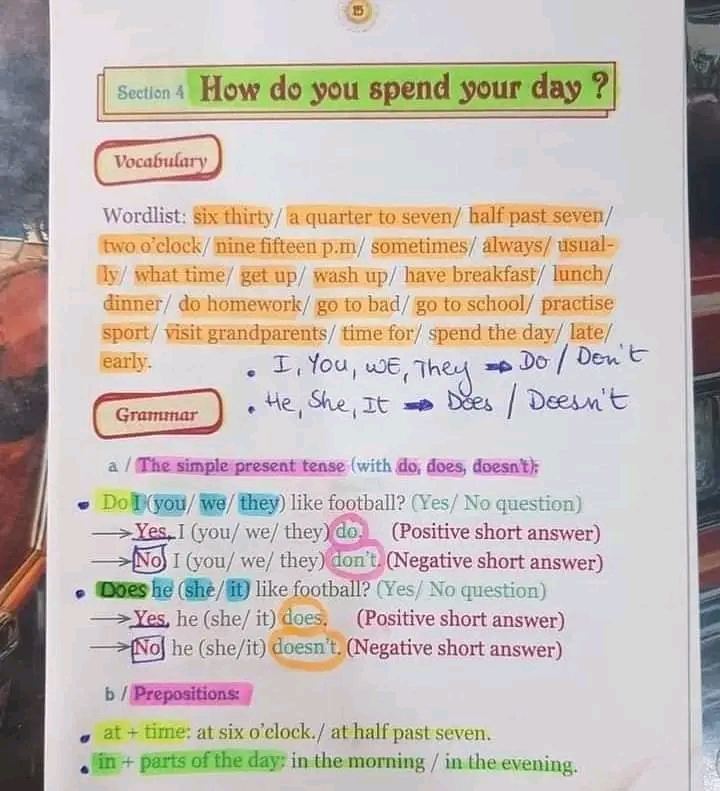 15
Section 4 How do you spend your day ?
Vocabulary
Wordlist: six thirty/ a quarter to seven/ half past seven/
two o'clock/ nine fifteen p.m/ sometimes/ always/ usual-
ly/ what time/ get up/ wash up/ have breakfast/ lunch/
dinner/ do homework/ go to bad/ go to school/ practise
sport/ visit grandparents/ time for/ spend the day/ late/
early.
• I, You, WE, They ➡ Do / Don't
• He, She, It ➡ Does / Doesn't
Grammar
a / The simple present tense (with do, does, doesn't):
• Do I (you/ we/ they) like football? (Yes/ No question)
→ Yes, I (you/ we/ they) do. (Positive short answer)
→ No, I (you/ we/ they) don't. (Negative short answer)
• Does he (she/ it) like football? (Yes/ No question)
→ Yes, he (she/ it) does. (Positive short answer)
→ No, he (she/it) doesn't. (Negative short answer)
b / Prepositions:
• at + time: at six o'clock./ at half past seven.
• in + parts of the day: in the morning / in the evening.